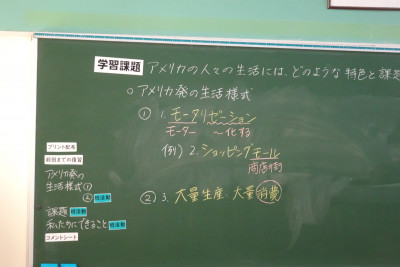 学習課題 アメリカの人々の生活には、どのような特色と課題
○アメリカ発の生活様式
① 1. モータリゼーション
モーター ～化する
例) 2. ショッピングモール
商店街
② 3. 大量生産 大量消費
プリント配布
前回までの復習
アメリカ発の
生活様式①
② 班活動
課題 班活動
私たちにできること 班活動
コメントシート